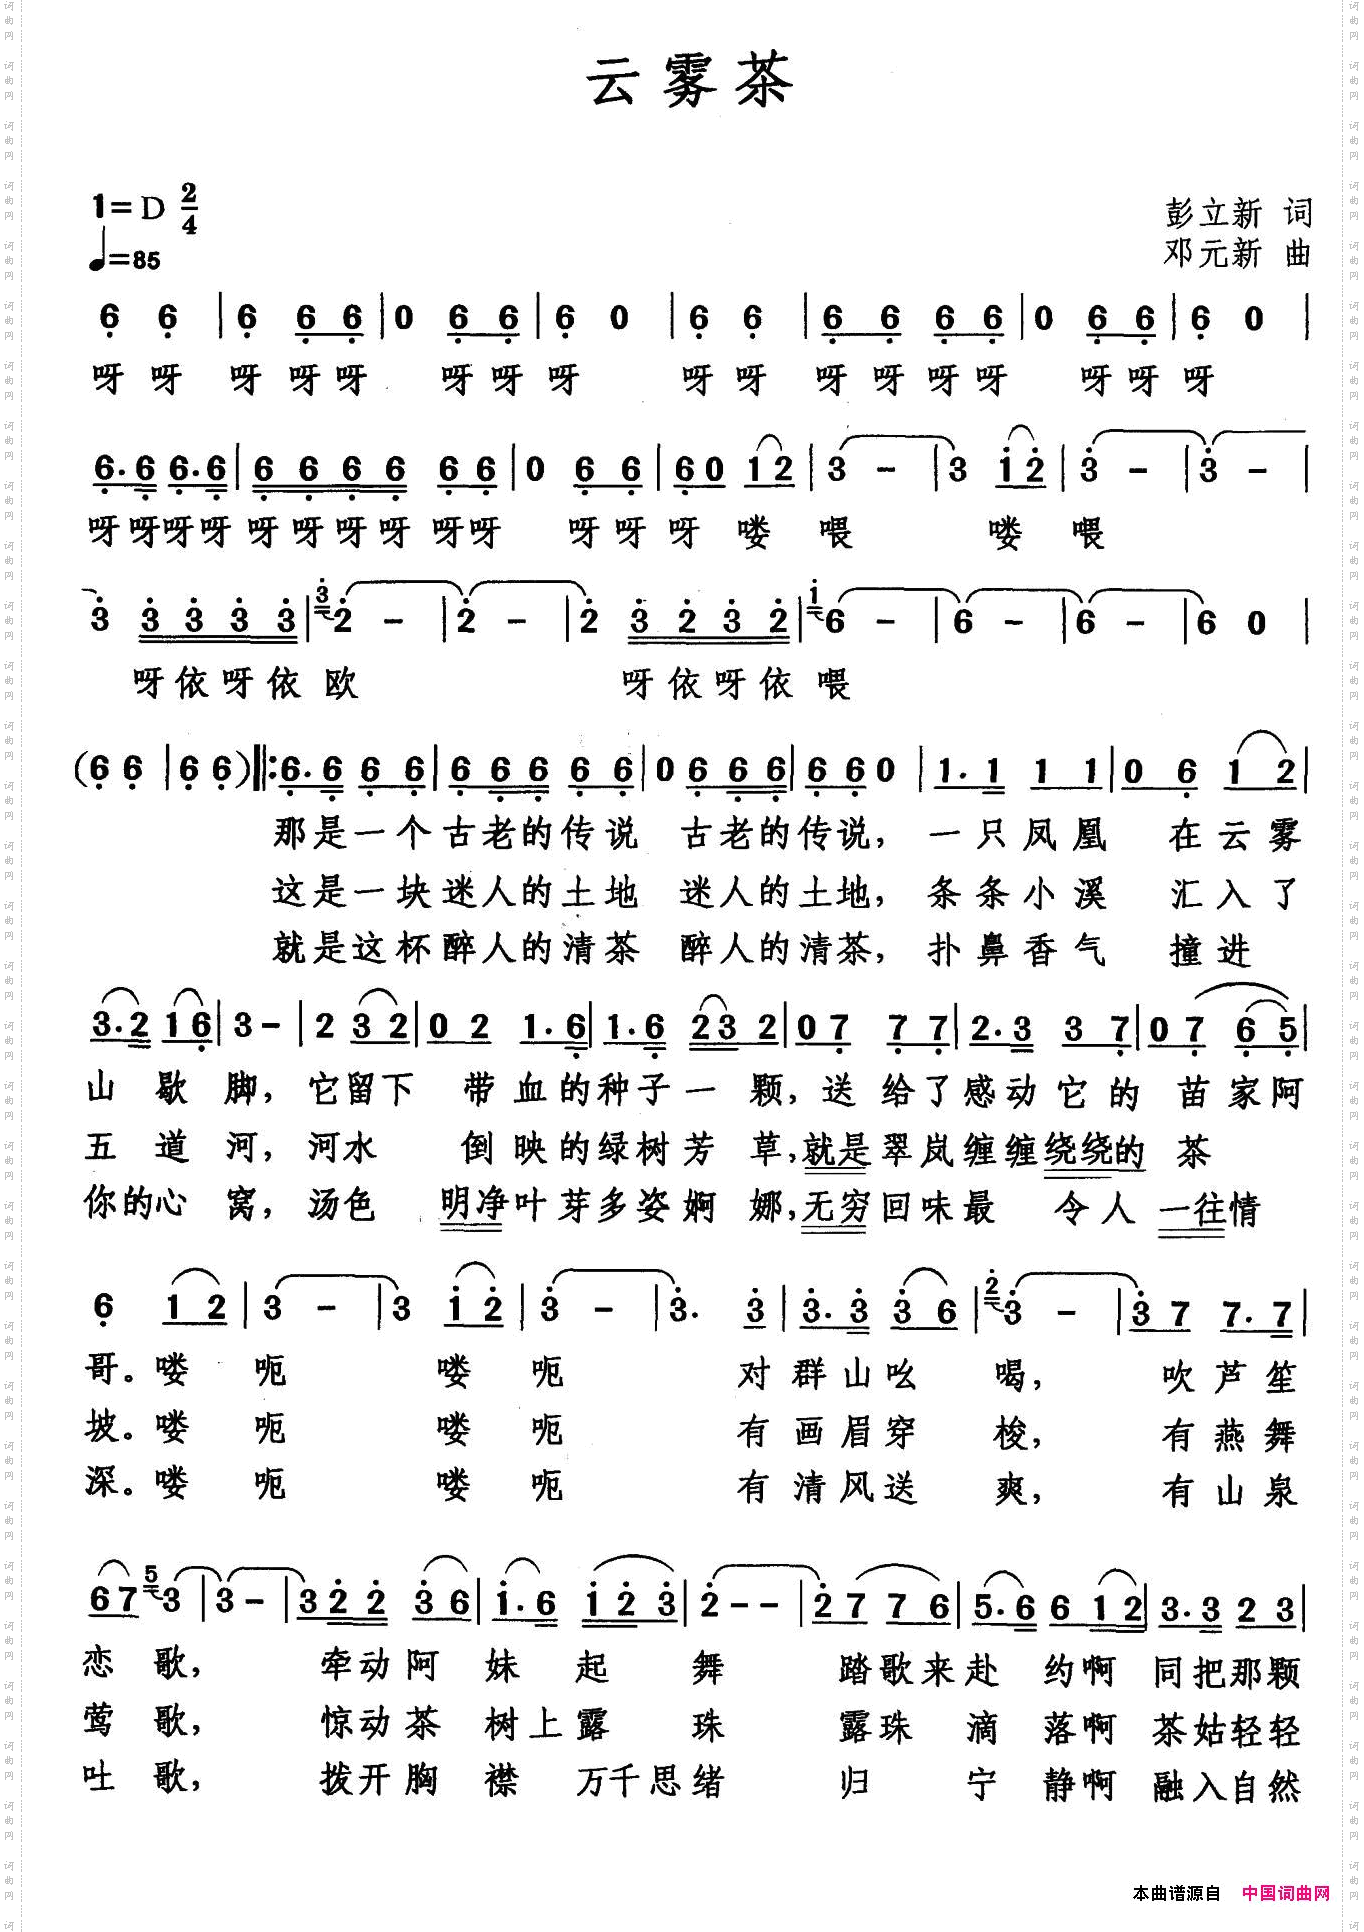 云雾茶
1=D 2/4
♩=85
彭立新 词
邓元新 曲
6 6 | 6 6 6 | 0 6 6 | 6 0 | 6 6 | 6 6 6 6 | 0 6 6 | 6 0 |
呀 呀 呀 呀 呀 呀 呀 呀 呀 呀 呀 呀 呀 呀 呀 呀 呀
6. 6 6. 6 | 6 6 6 6 6 6 | 0 6 6 | 6 0 1 2 | 3 - | 3 1 2 | 3 - | 3 - |
呀 呀 呀 呀 呀 呀 呀 呀 呀 呀 呀 呀 呀 喽 喂 喽 喂
3 3 3 3 3 | 3 2 - | 2 - | 2 3 2 3 2 | 1 6 - | 6 - | 6 - | 6 0 |
呀 依 呀 依 欧 呀 依 呀 依 喂
(6 6 | 6 6) ‖: 6. 6 6 6 | 6 6 6 6 6 | 0 6 6 6 | 6 6 0 | 1. 1 1 1 | 0 6 1 2 |
那是一个古老的传说 古老的传说, 一只凤凰 在云雾
这是一块迷人的土地 迷人的土地, 条条小溪 汇入了
就是这杯醉人的清茶 醉人的清茶, 扑鼻香气 撞进
3. 2 1 6 | 3 - | 2 3 2 | 0 2 1. 6 | 1. 6 2 3 2 | 0 7 7 7 | 2. 3 3 7 | 0 7 6 5 |
山 歇 脚, 它留下 带血的种子一 颗, 送给了感动它的 苗家阿
五 道 河, 河水 倒映的绿树芳 草, 就是翠岚缠缠绕绕的 茶
你的心 窝, 汤色 明净叶芽多姿婀 娜, 无穷回味最 令人 一往情
6 1 2 | 3 - | 3 1 2 | 3 - | 3. 3 | 3. 3 3 6 | 2 3 - | 3 7 7. 7 |
哥。喽 呃 喽 呃 对群山吆 喝, 吹芦笙
坡。喽 呃 喽 呃 有画眉穿 梭, 有燕舞
深。喽 呃 喽 呃 有清风送 爽, 有山泉
6 7 5 3 | 3 - | 3 2 2 3 6 | 1. 6 1 2 3 | 2 - - | 2 7 7 6 | 5. 6 6 1 2 | 3. 3 2 3 |
恋 歌, 牵动阿 妹 起 舞 踏歌来赴 约啊 同把那颗
莺 歌, 惊动茶 树上露 珠 露珠 滴 落啊 茶姑轻轻
吐 歌, 拨开胸 襟 万千思绪 归 宁 静啊 融入自然
本曲谱源自 中国词曲网